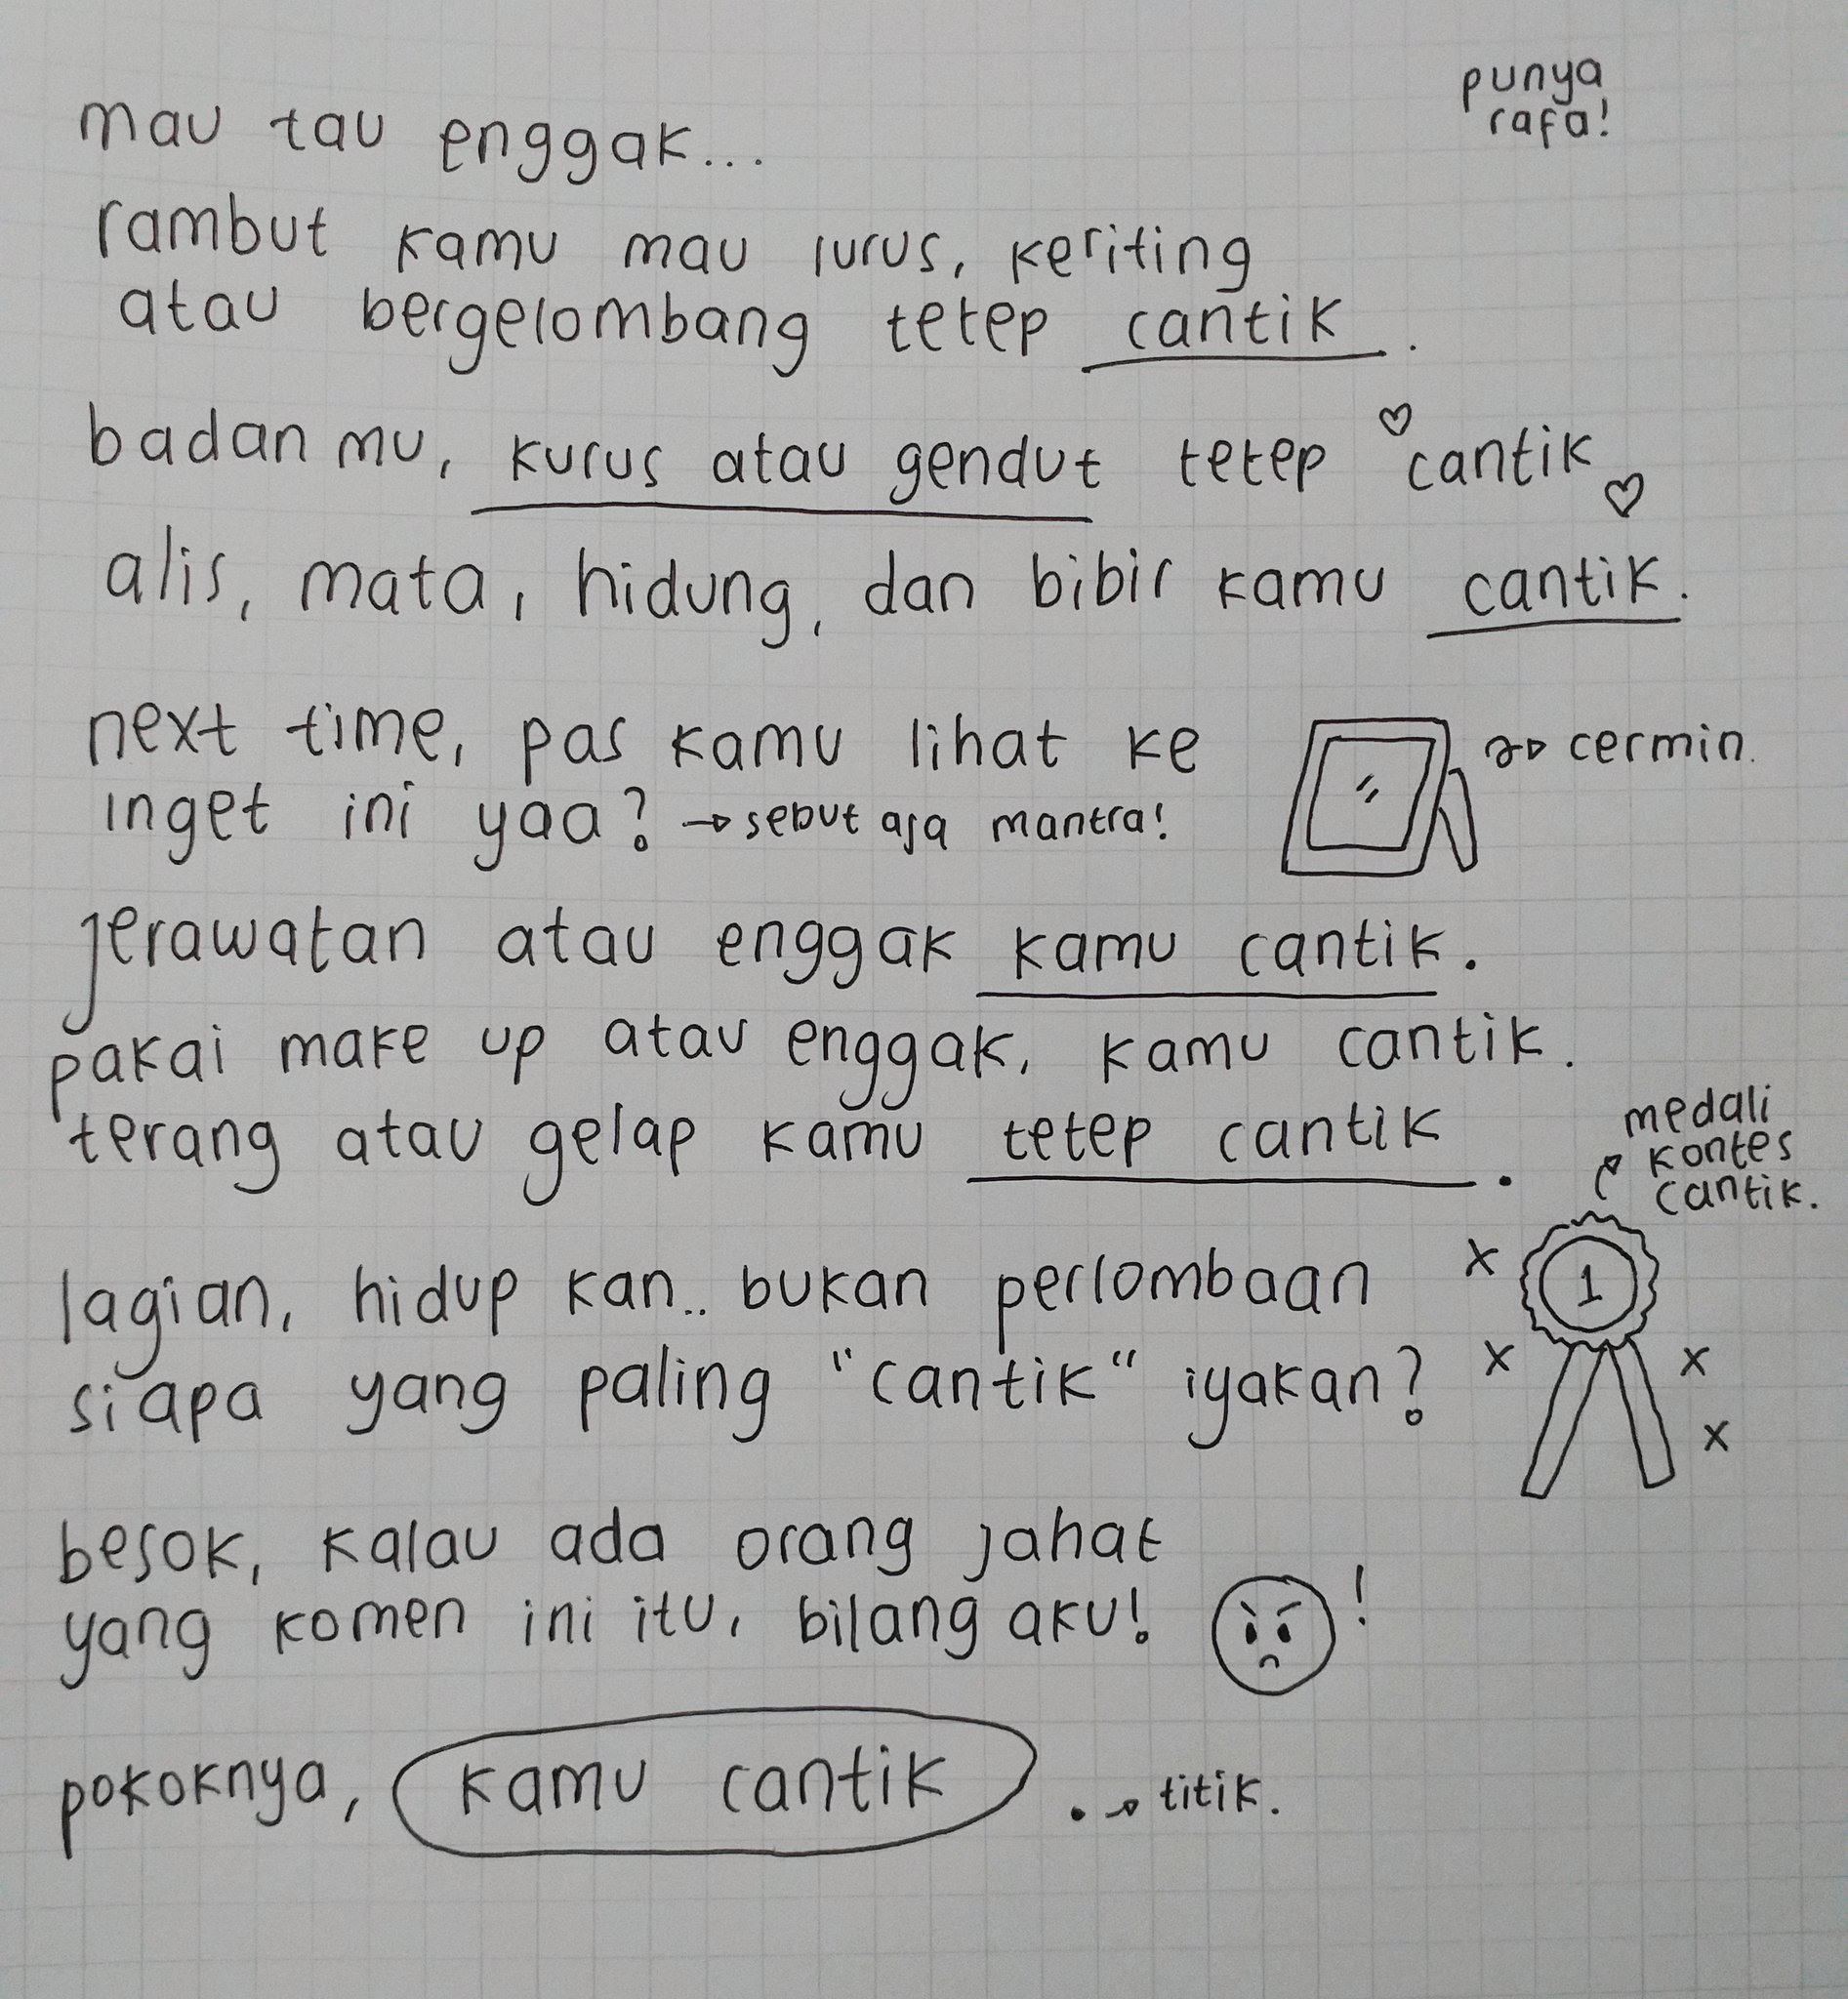 punya
rafa!
mau tau enggak...
rambut kamu mau lurus, keriting
atau bergelombang tetep cantik.
badan mu, kurus atau gendut tetep cantik
alis, mata, hidung, dan bibir kamu cantik.
next time, pas kamu lihat ke
cermin.
inget ini yaa? → sebut aja mantra!
jerawatan atau enggak kamu cantik.
pakai make up atau enggak, kamu cantik.
terang atau gelap kamu tetep cantik.
medali
kontes
cantik.
1
lagian, hidup kan.. bukan perlombaan
siapa yang paling "cantik" iyakan?
besok, kalau ada orang jahat
yang komen ini itu, bilang aku! !
pokoknya, kamu cantik . → titik.